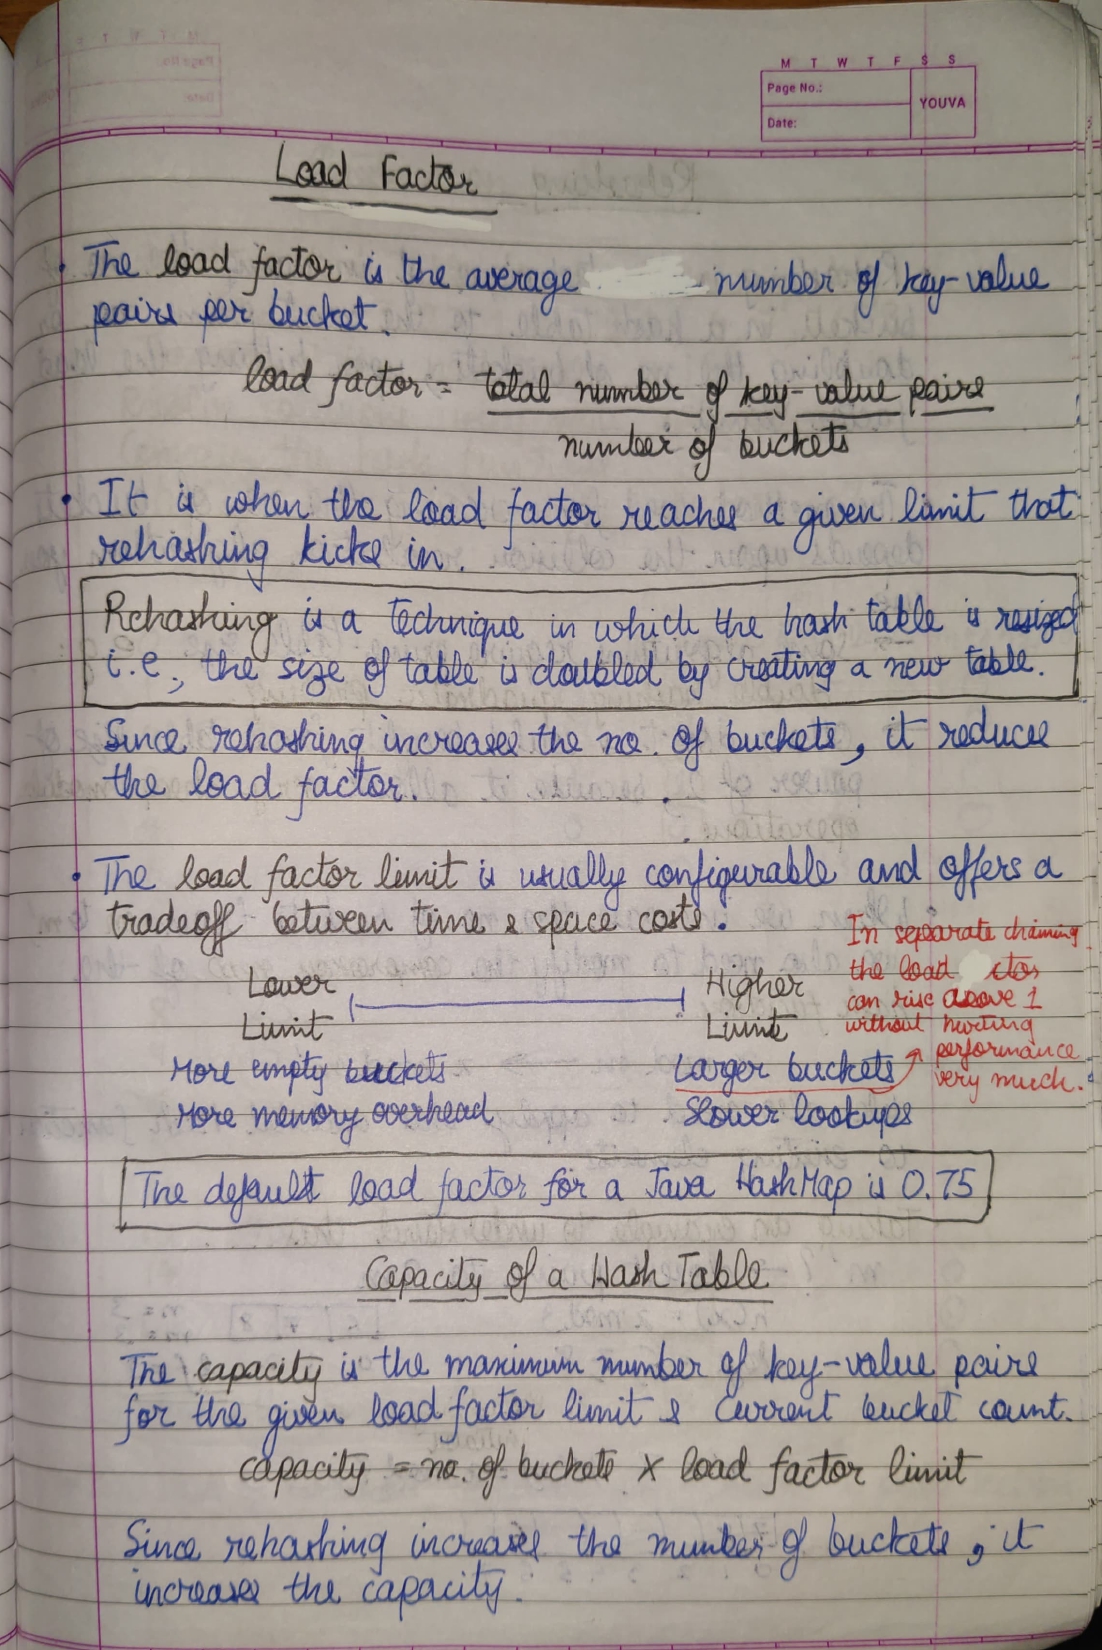 M T W T F S S
Page No.:
YOUVA
Date:
Load Factor
• The load factor is the average number of key-value
pairs per bucket.
load factor = total number of key-value pairs
number of buckets
• It is when the load factor reaches a given limit that
rehashing kicks in.
Rehashing is a technique in which the hash table is resized
i.e., the size of table is doubled by creating a new table.
Since rehashing increases the no. of buckets, it reduces
the load factor.
• The load factor limit is usually configurable and offers a
tradeoff between time & space costs.
In separate chaining
the load ctor
can rise above 1
without hurting
performance
very much.
Lower
Limit
Higher
Limit
More empty buckets
Larger buckets
More memory overhead
Slower lookups
The default load factor for a Java HashMap is 0.75
Capacity of a Hash Table
The capacity is the maximum number of key-value pairs
for the given load factor limit & current bucket count.
capacity = no. of buckets × load factor limit
Since rehashing increases the number of buckets, it
increases the capacity.